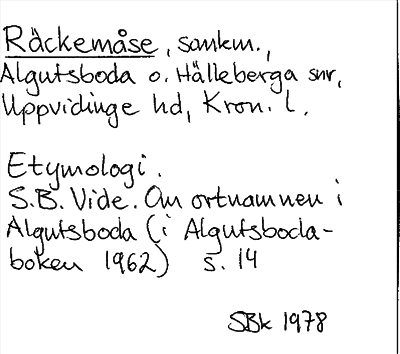 Räckemåse, sankm.,
Algutsboda o. Hälleberga snr,
Uppvidinge hd, Kron. l.
Etymologi.
S.B. Vide. Om ortnamnen i
Algutsboda (i Algutsboda-
boken 1962) s. 14
SBk 1978